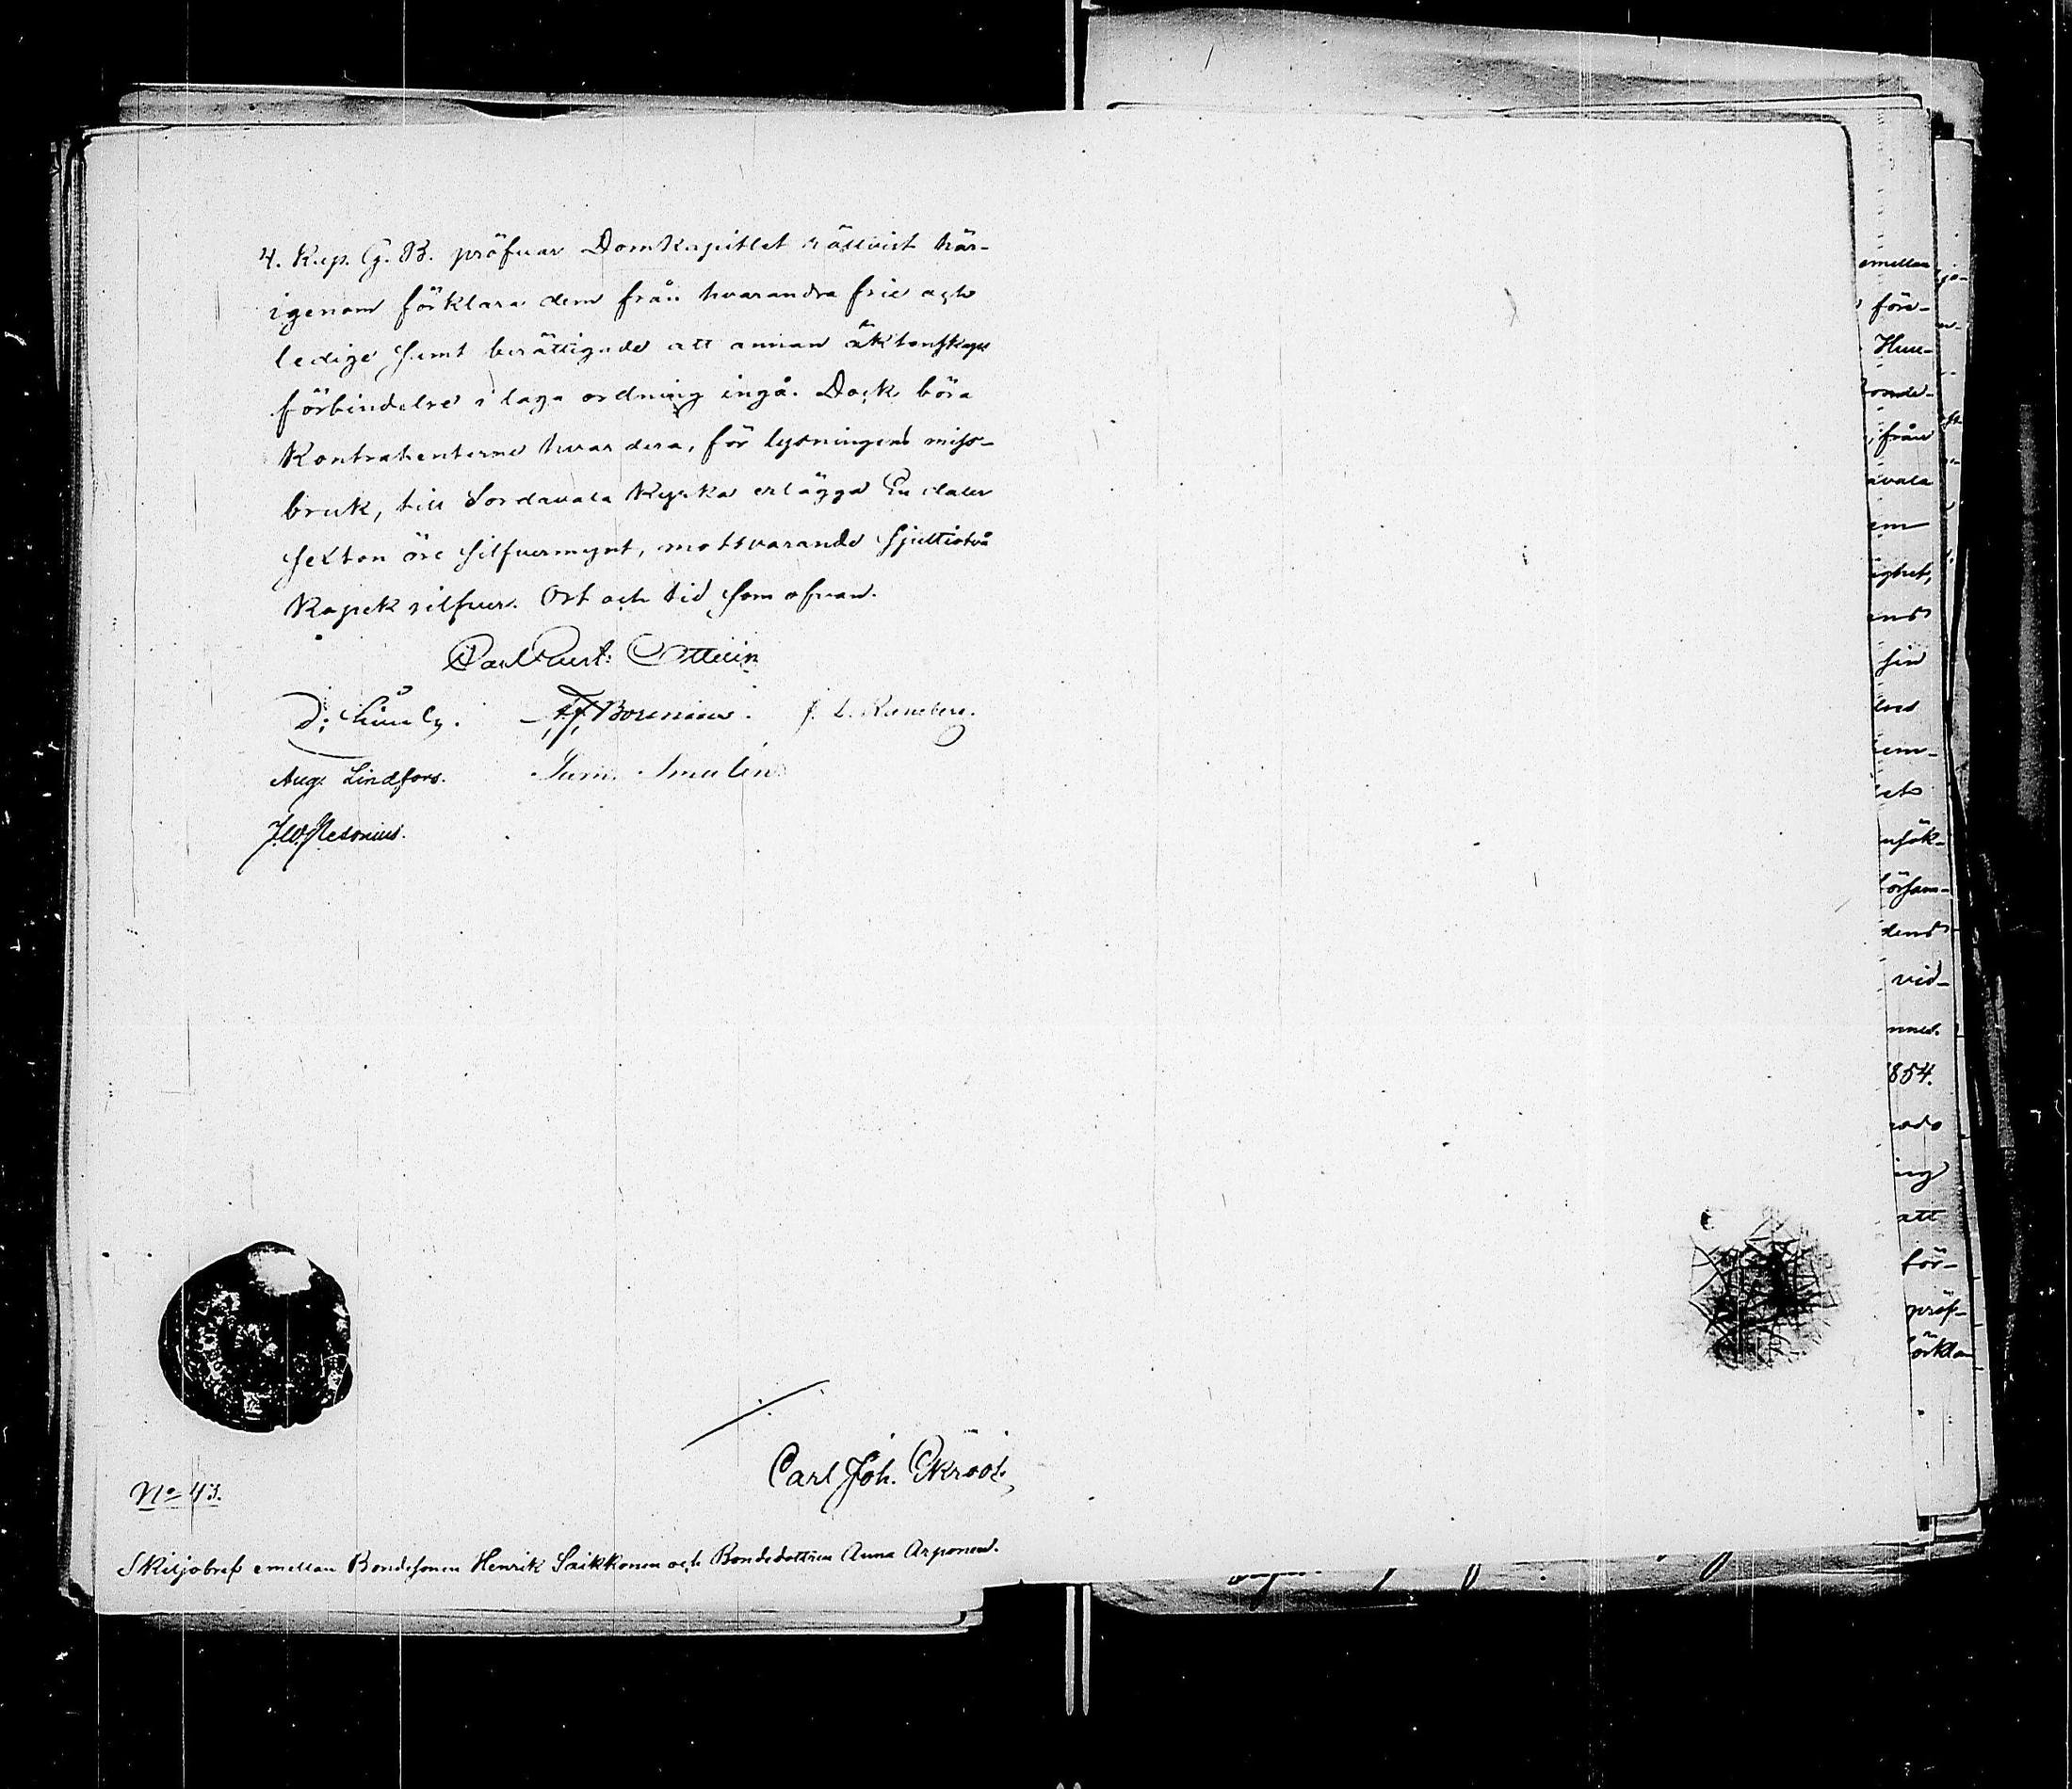 4. Kap. G. B. pröfvar Domkapitlet rättvist här-
igenom förklara dem från hvarandra frie och
ledige samt berättigade att annan äktenskaps
förbindelse i laga ordning ingå. Dock böra
Kontrahenterne hvardera, för lysningens miss-
bruk, till Sordavala Kyrka erlägga En daler
sexton öre silfvermynt, motsvarande sjuttiotvå
Kopek silfver. Ort och tid som ofvan.
Carl Gust. Ottelin
A. J. Borenius. J. L. Runeberg.
Aug. Lindfors.
Carl Joh. Ekroos
No 43.
Skiljobref emellan Bondesonen Henrik Saikkonen och Bondedottren Anna Arponen.
emellan
före-
från
avala
em
ighet,
ens
sin
vid-
1854.
ing
att
för-
pröf-
örkla